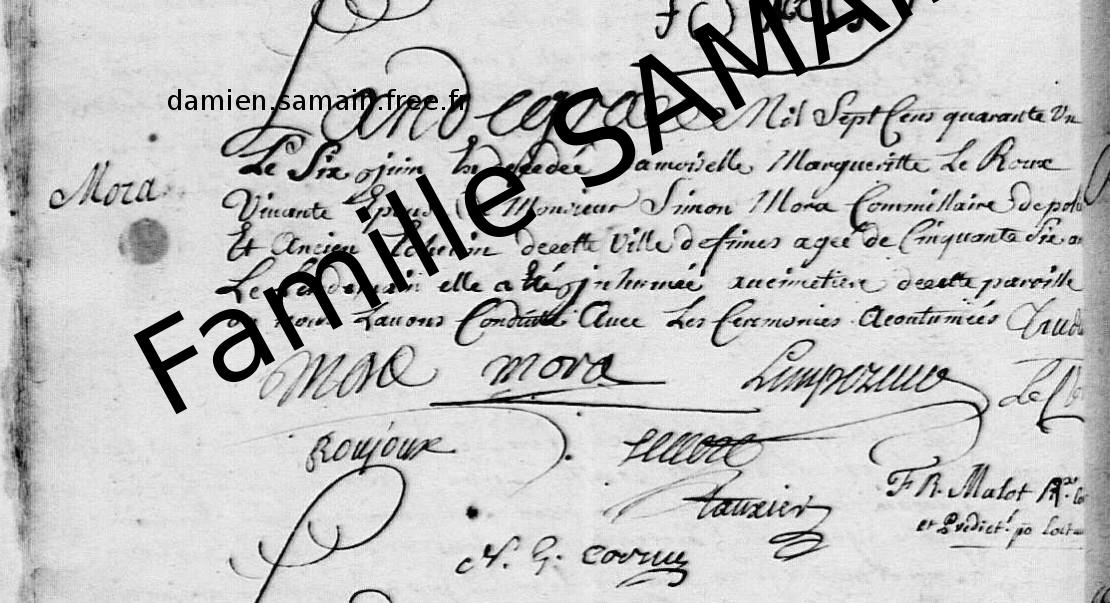 damien.samain.free.fr
Famille SAMAIN
Landegrace Mil Sept Cens quarante Un
Mora
Le Six juin est decedée damoiselle Margueritte Le Roux
Vivante Epouse de Monsieur Simon Mora Commissaire de poli
Et Ancien Echevin decette Ville defimes agée de Cinquante Six an
Le Lendemain elle a été inhumée aucimetiere decette paroisse
ou nous Lavons Conduite Avec Les Ceremonies Acoutumées
Mora mora
Roujoux
tauxier
F R. Malot
N. G.